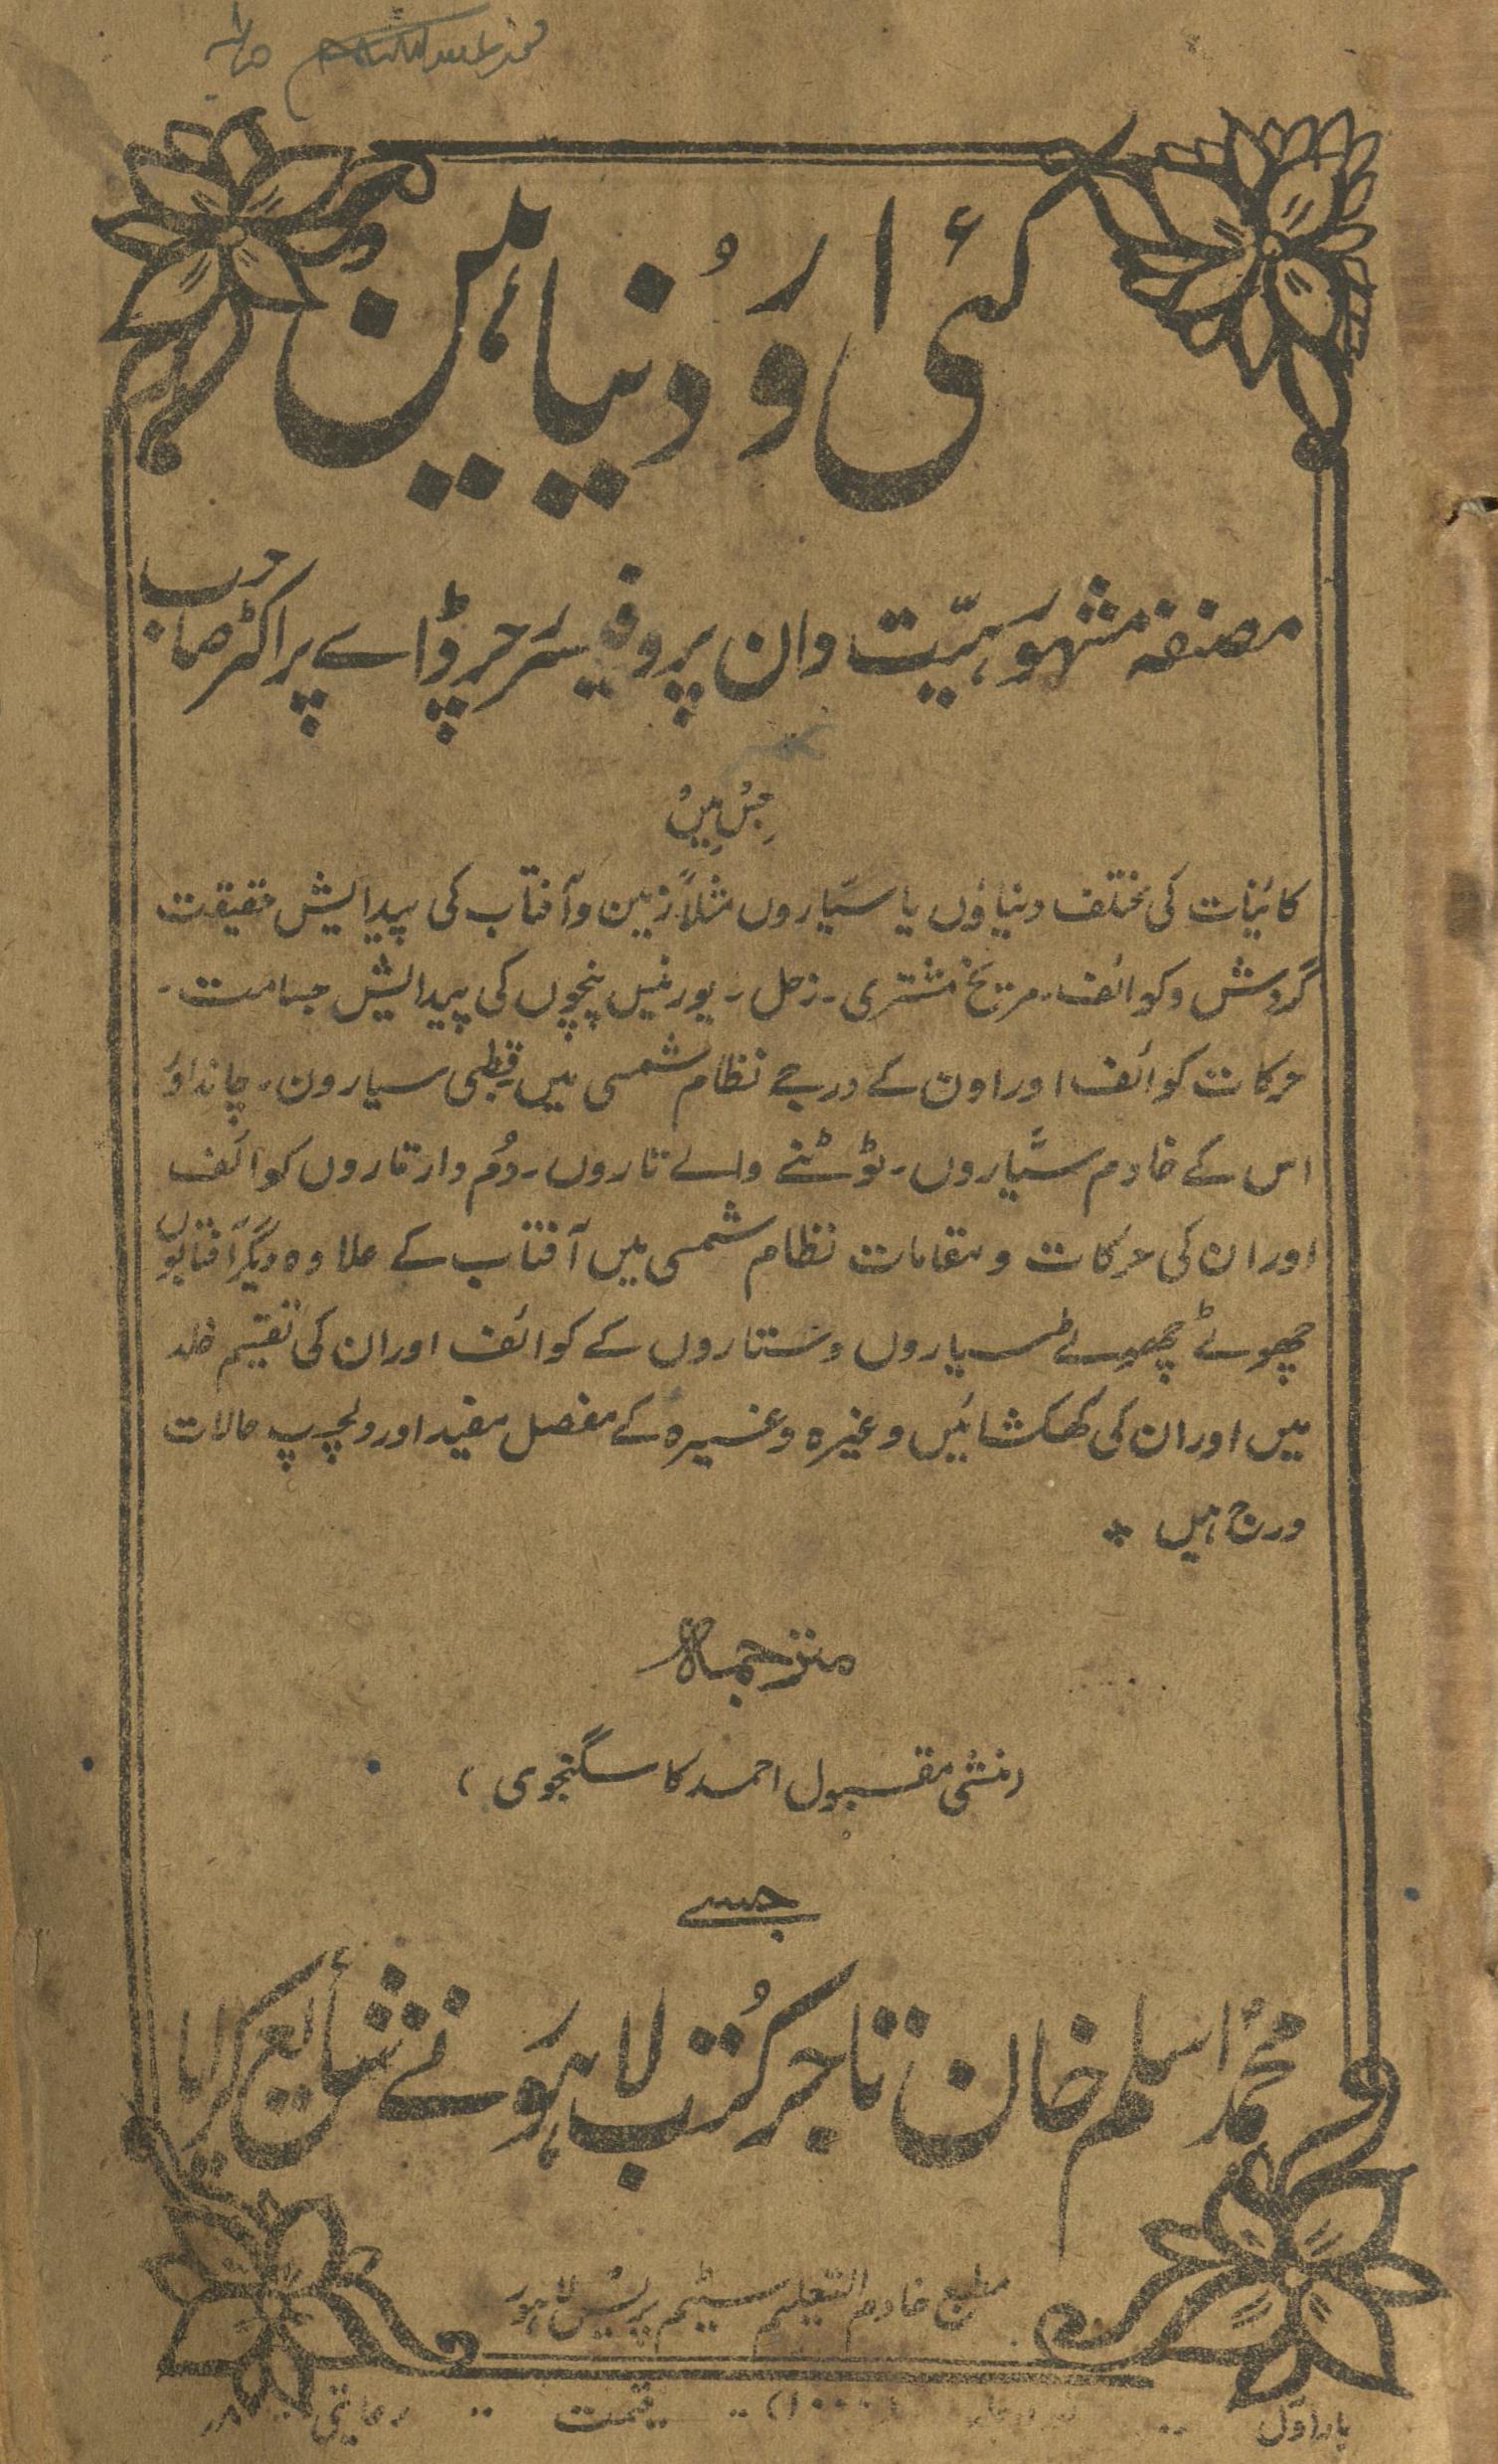 کئی اور دنیائیں
مصنفہ مشہور ہیّت دان پروفیسر رچرڈ اے پراکٹر صاحب
جس میں
کائنات کی مختلف دنیاؤں یا سیّاروں مثلاً زمین وآفتاب کی پیدایش حقیقت
گردش وکوائف۔ مریخ مشتری۔ زحل۔ یورنیس پنچوں کی پیدائش جسامت۔
حرکات کوائف اور اون کے درجے نظام شمسی میں۔ قطبی سیارون۔ چاند اور
اس کے خادم سیّاروں۔ ٹوٹنے والے تاروں۔ دُم دار تاروں کوائف
اور ان کی حرکات و مقامات نظام شمسی میں آفتاب کے علاوہ دیگر آفتابوں
چھوٹے چھوٹے سیاروں و ستاروں کے کوائف اور ان کی تقسیم خلد
میں اور ان کی کہکشائیں وغیرہ وغیرہ کے مفصل مفید اور دلچسپ حالات
درج ہیں *
مترجمہ
(منشی مقبول احمد کاسگنجوی)
جسے
محمد اسلم خان تاجر کُتب لاہور نے شایع کرایا
مطبع خادم التعلیم سٹیم پریس لاہور
بار اول (۱۰۰۰) قیمت رعایتی ۸؍